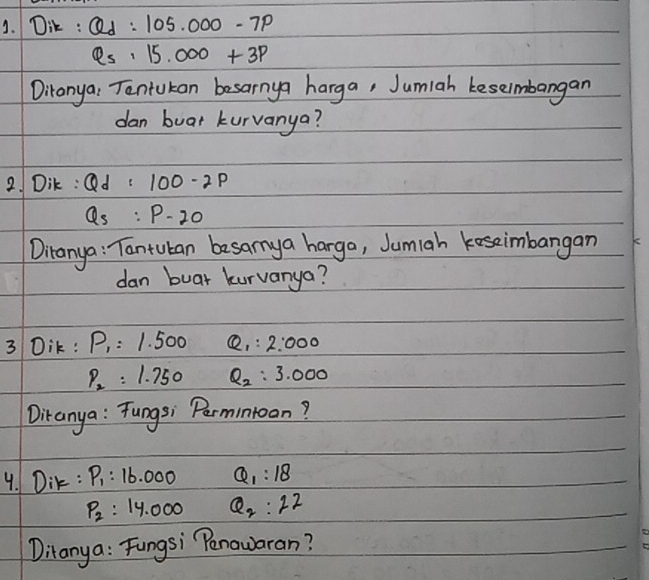 1. Dik : Qd : 105.000 - 7P
Qs : 15.000 + 3P
Ditanya: Tentukan besarnya harga, Jumlah keseimbangan
dan buat kurvanya?
2. Dik : Qd : 100 - 2P
Qs : P - 20
Ditanya: Tantukan besarnya harga, Jumlah keseimbangan
dan buat kurvanya?
3 Dik : P₁ : 1.500 Q₁ : 2.000
P₂ : 1.750 Q₂ : 3.000
Ditanya : Fungsi Permintaan?
4. Dik : P₁ : 16.000 Q₁ : 18
P₂ : 14.000 Q₂ : 22
Ditanya : Fungsi Penawaran?